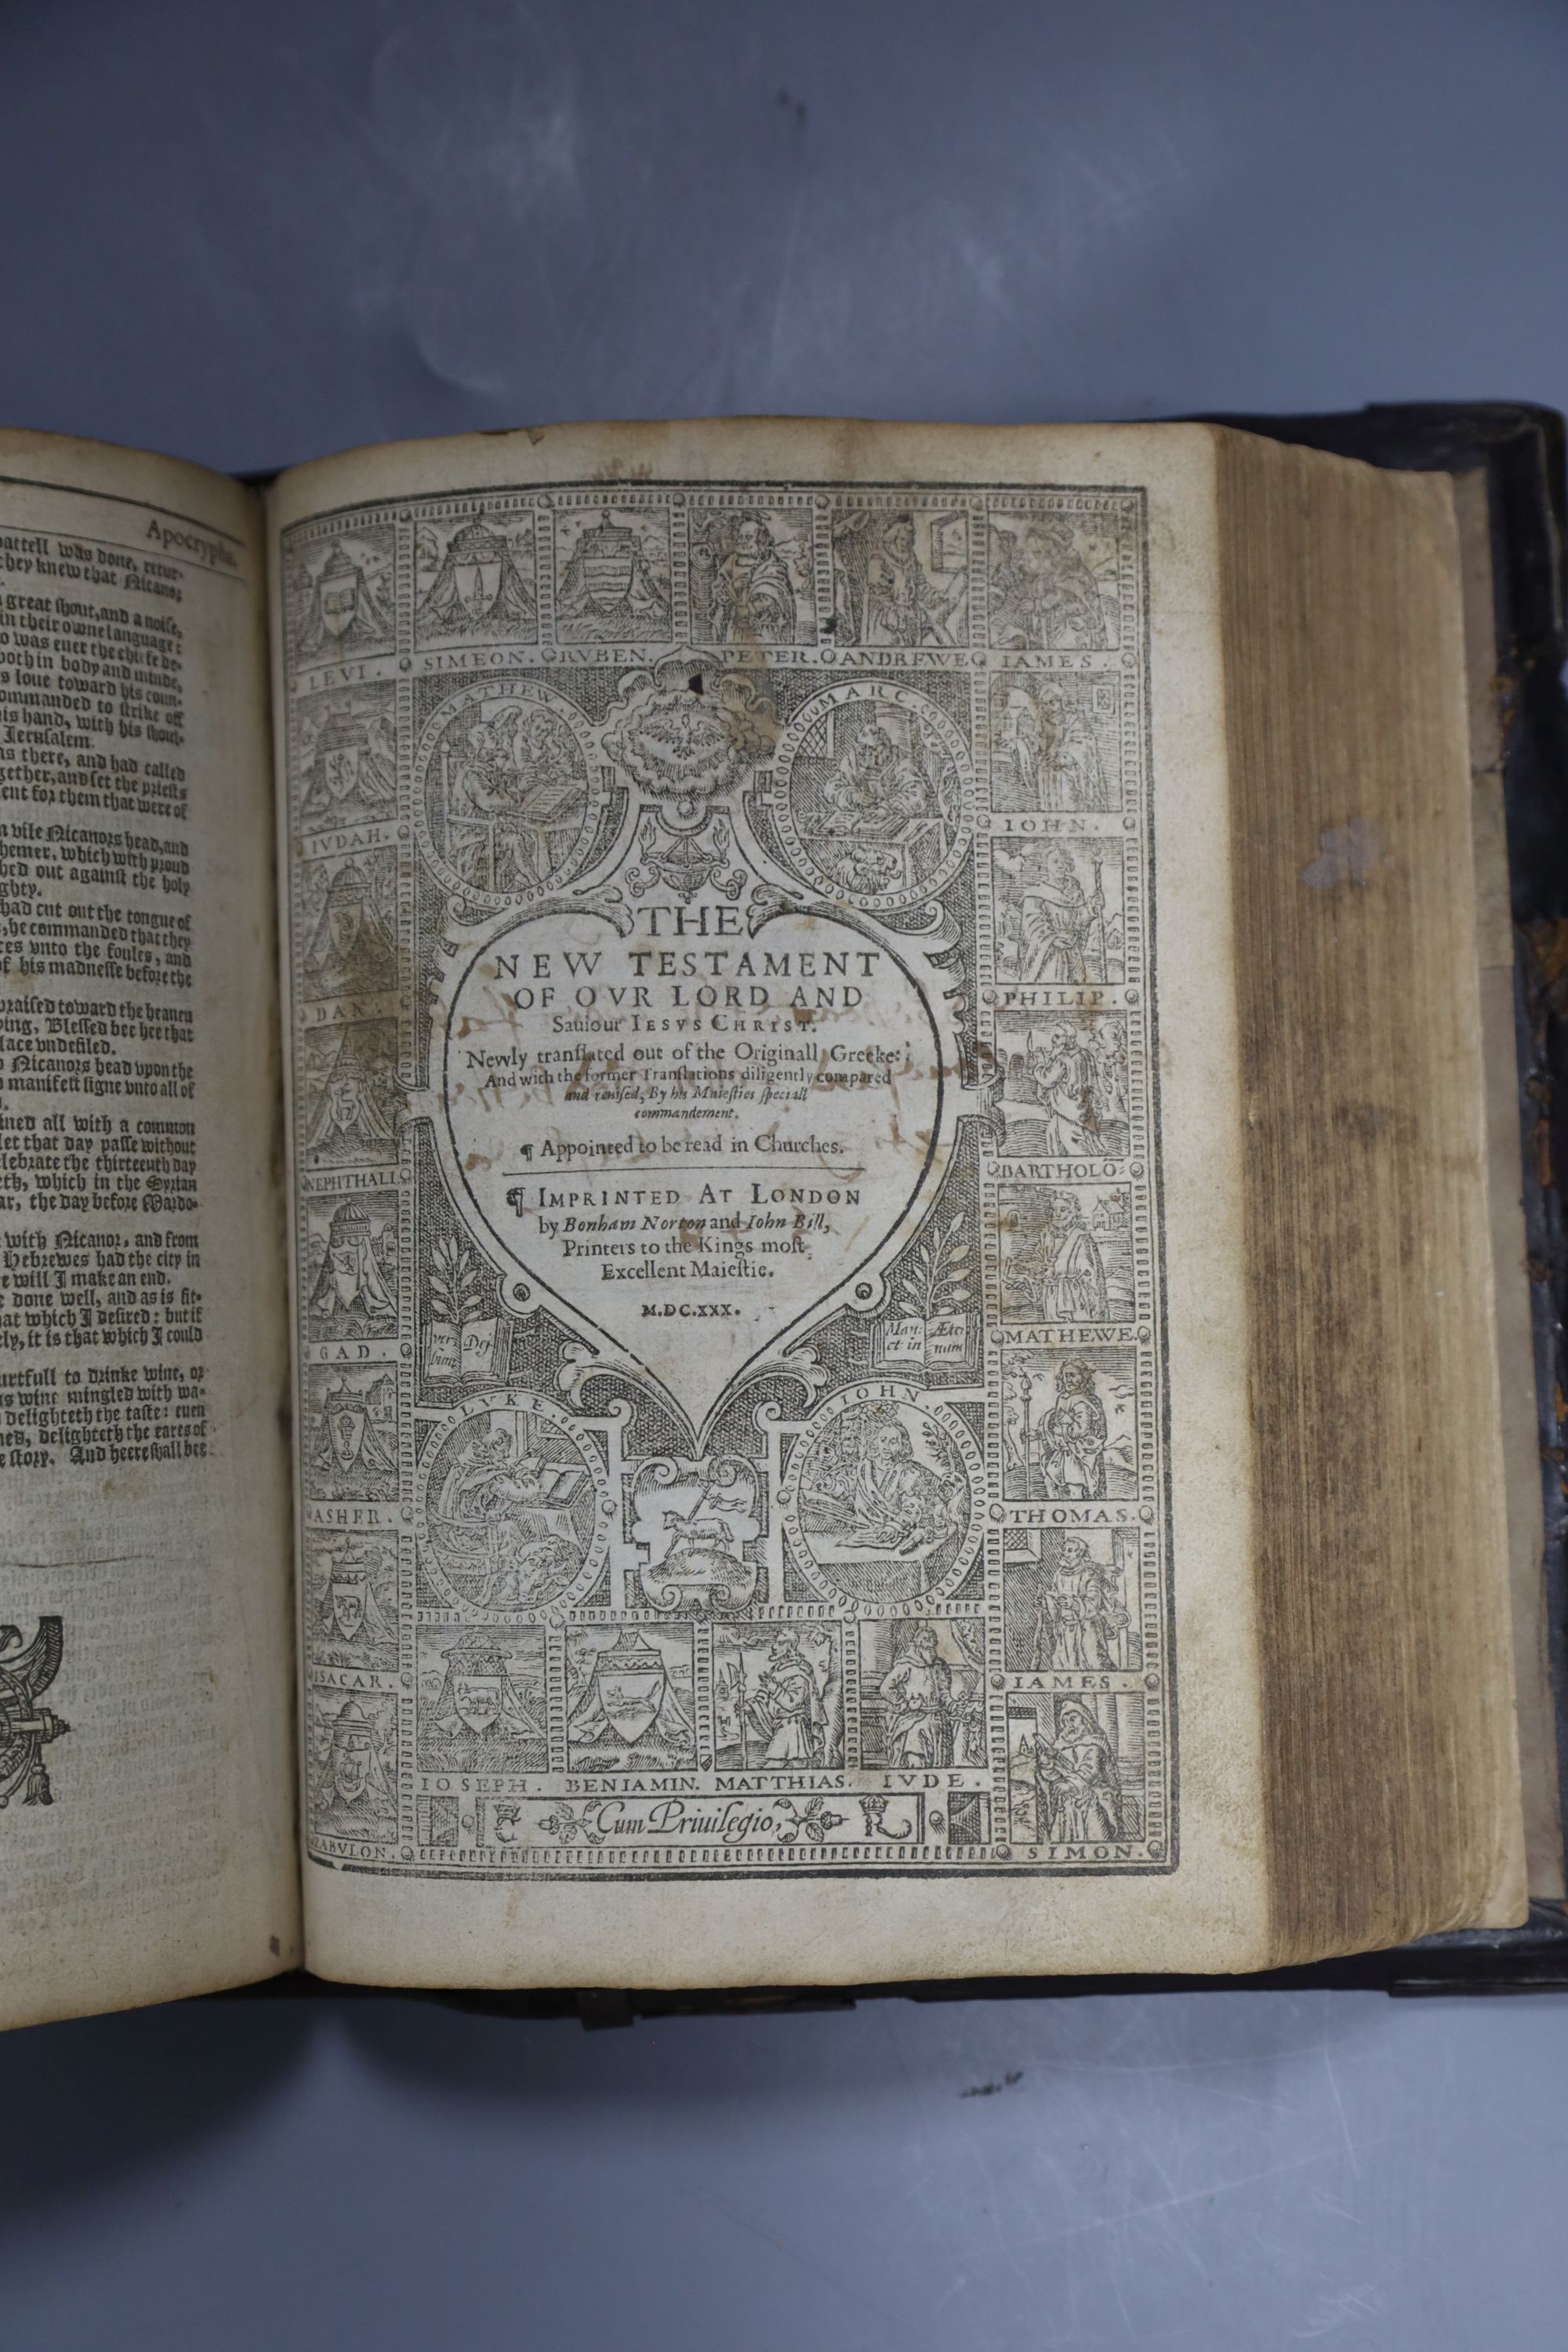 Apocrypha.
battell was done, retur-
they knew that Nicanor
great shout, and a noise,
in their owne language:
was euer the chiefe de-
both in body and minde,
s loue toward his coun-
ommanded to strike off
his hand, with his shoul-
Jerusalem.
as there, and had called
gether, and set the priests
ent for them that were of
vile Nicanors head, and
hemer, which with proud
hed out against the holy
ghty.
had cut out the tongue of
, he commanded that they
ces vnto the foules, and
f his madnesse before the
praised toward the heauen
ying, Blessed bee hee that
lace vndefiled.
Nicanors head vpon the
manifest signe vnto all of
ined all with a common
let that day passe without
elebrate the thirteenth day
eth, which in the Syrian
ar, the day before Mardo-
with Nicanor, and from
Hebrewes had the city in
e will I make an end.
e done well, and as is fit-
hat which I desired: but if
ly, it is that which I could
urtfull to drinke wine, or
s wine mingled with wa-
delighteth the taste: euen
ned, delighteth the eares of
e story. And heere shall bee
LEVI. SIMEON. RVBEN. PETER. ANDREWE IAMES.
MATHEW. MARC.
IVDAH. IOHN.
DAN. PHILIP.
NEPHTHALI BARTHOLO:
GAD. MATHEWE.
ASHER. THOMAS.
ISACAR. IAMES.
THE
NEW TESTAMENT
OF OVR LORD AND
Sauiour IESVS CHRIST.
Newly translated out of the Originall Greeke:
And with the former Translations diligently compared
and reuised, By his Maiesties speciall
commandement.
¶ Appointed to be read in Churches.
¶ IMPRINTED AT LONDON
by Bonham Norton and Iohn Bill,
Printers to the Kings most
Excellent Maiestie.
M.DC.XXX.
ver bum Dej Man: et in Æter num
LVKE. IOHN
IOSEPH. BENIAMIN. MATTHIAS. IVDE.
Cum Priuilegio,
ZABVLON. SIMON.